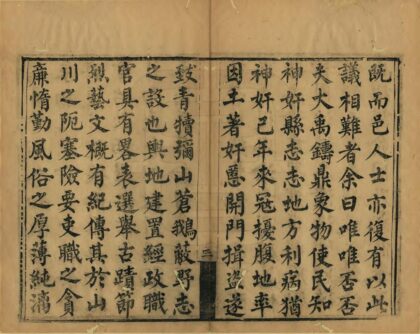 既而邑人士亦復有以此
議相難者余曰唯唯否否
夫大禹鑄鼎象物使民知
神奸縣志志地方利病猶
神奸已年來寇擾腹地率
因土著奸慝開門揖盜遂
致青犢彌山蒼鵝蔽野志
之設也輿地建置經政職
官具有畧表選舉古蹟節
烈藝文概有紀傳其於山
川之阨塞險要吏職之貪
廉惰勤風俗之厚薄純漓